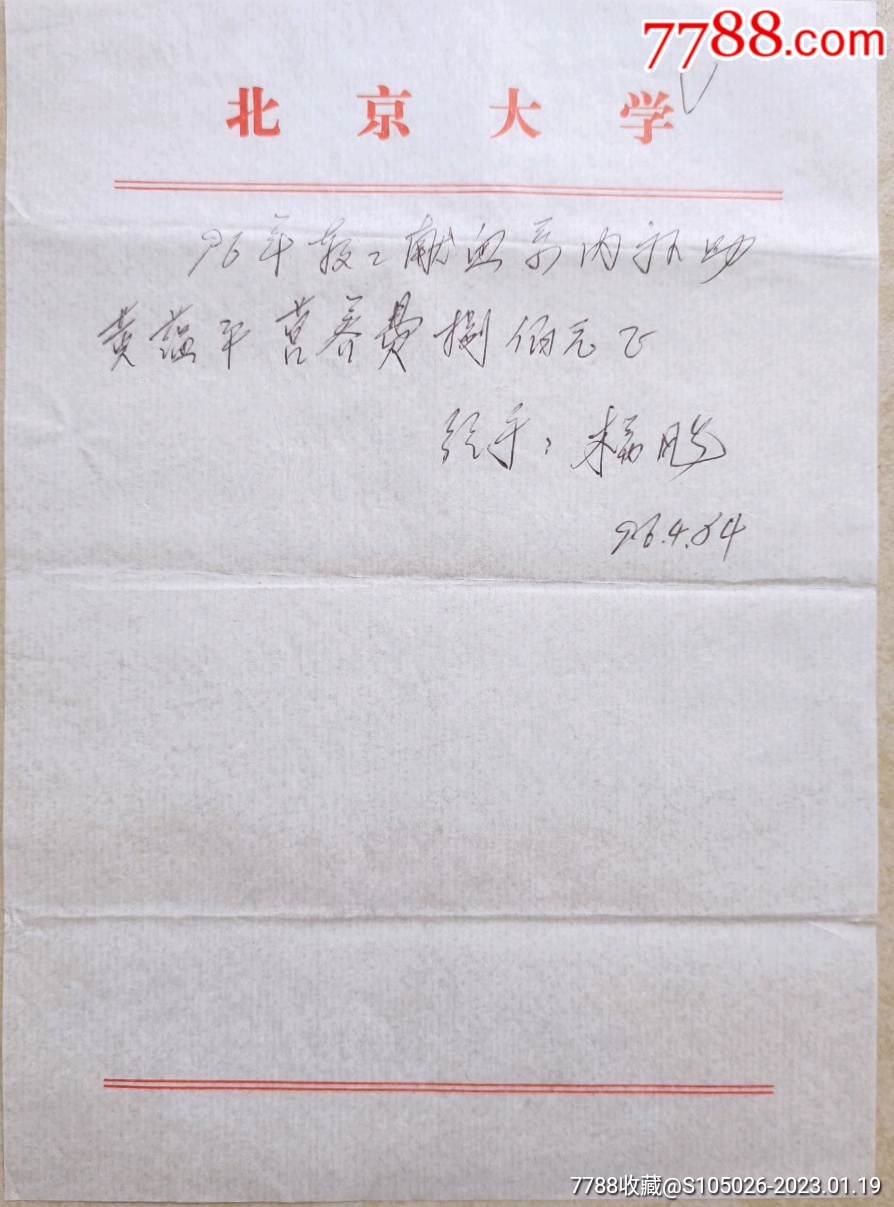 7788.com
北京大学
96年教工献血系内补助
黄蕴平营养费捌佰元正
经手：杨
96.4.24
7788收藏@S105026-2023.01.19